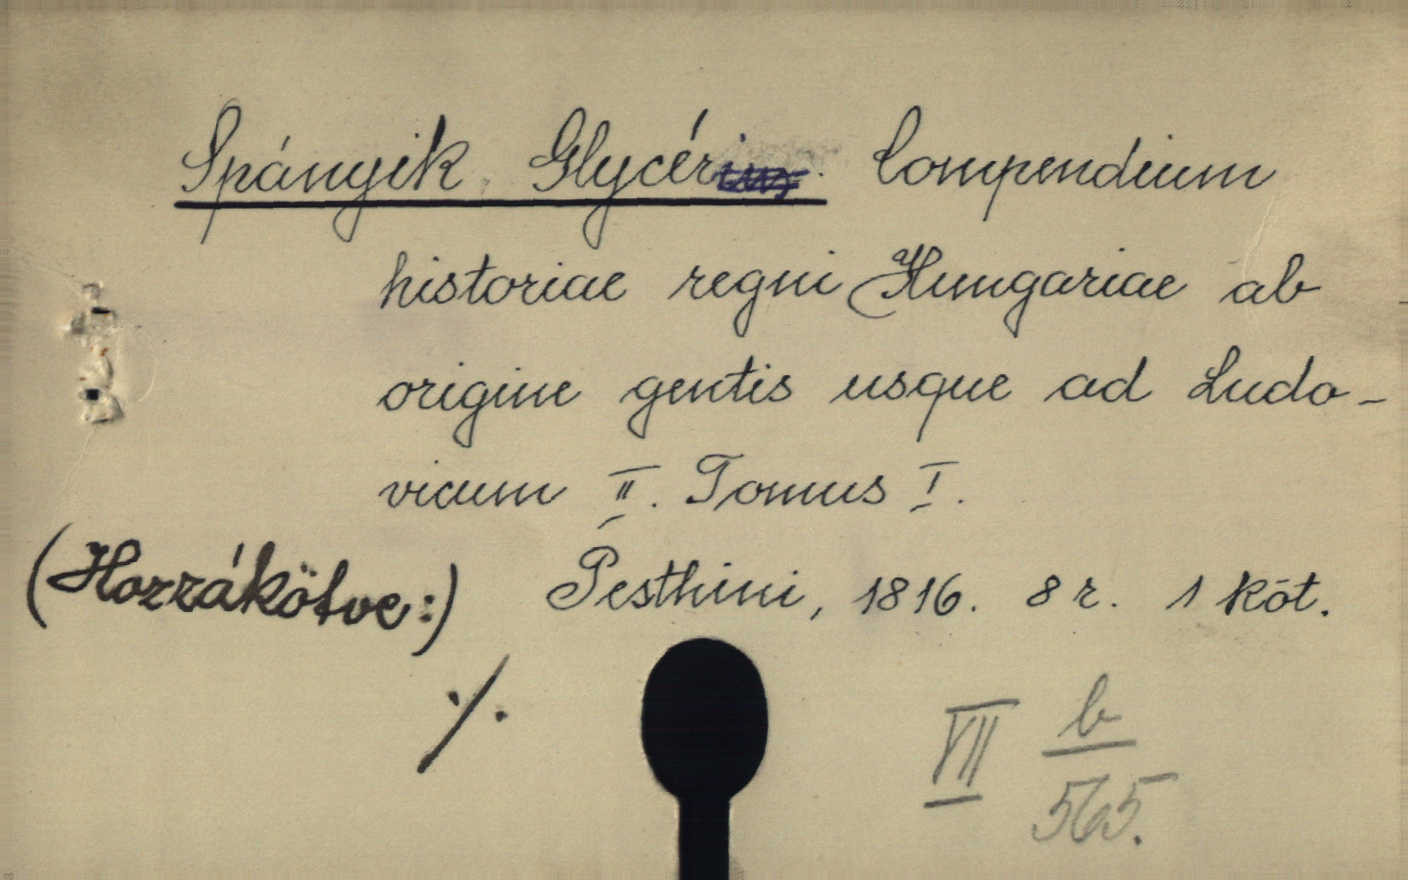 Spányik Glycér Compendium
historiae regni Hungariae ab
origine gentis usque ad Ludo-
vicum II. Tomus I.
(Hozzákötve:) Pesthini, 1816. 8 r. 1 köt.
./.
VII b/565.